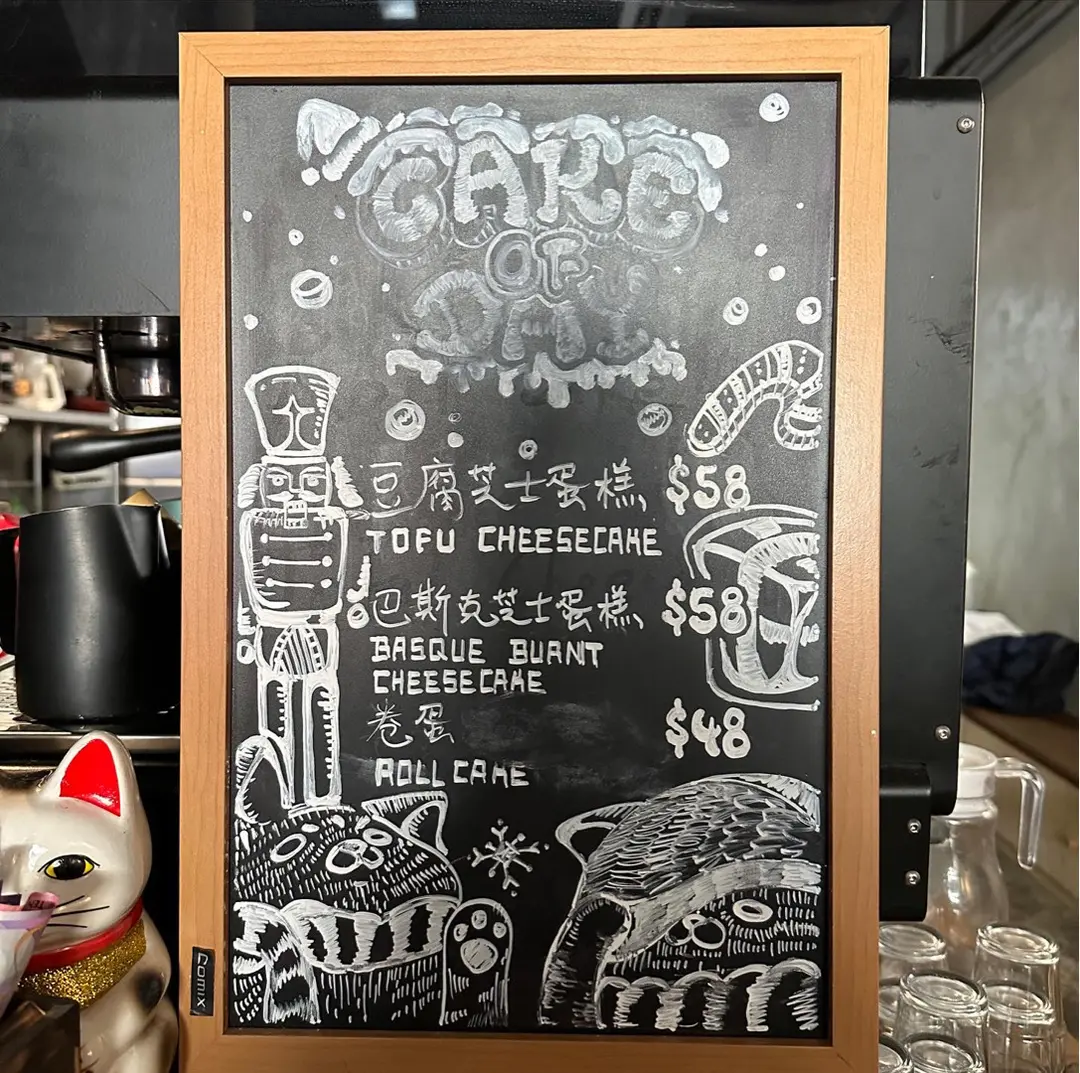 CAKE
OF
DAY
豆腐芝士蛋糕 $58
TOFU CHEESECAKE
巴斯克芝士蛋糕 $58
BASQUE BURNT
CHEESECAKE
卷蛋 $48
ROLL CAKE
Comix